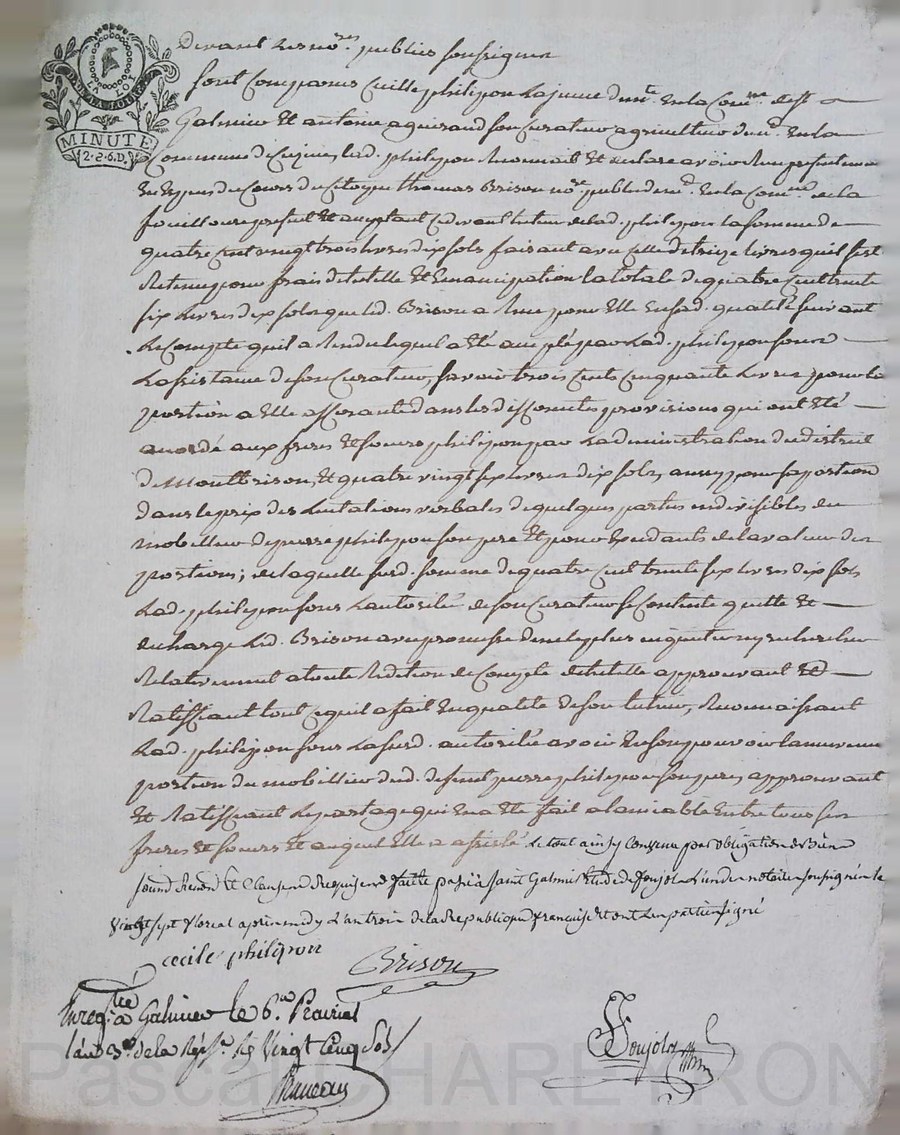 LA LOI
MINUTE
2.S.6.D.
Devant Les no.res publics soussignes
sont Comparus Cecille philipon La jeune dem.te en la Com.ne de St
Galmier Et antoine aguiraud son Curateur agriculteur dem.t en la
Commune de Cuzieu, lad. philipon Reconnait Et declare avoir Reçu presentement
Et Espuis du Cours du Citoyen thomas Brison no.re public dem.t en la Com.ne de la
fouillouse present Et acceptant cy devant tuteur de lad. philipon la somme de
quatre Cent vingt trois livres dix sols faisant avec Celle de treize livres qu'il s'est
Retenu pour frais de tutelle Et Emancipation la totale de quatre Cent trente
six Livres dix sols que led. Brison a Reçu pour Elle En sad. qualité suivant
Le Compte qu'il a Rendu lequel a Eté accepté par Lad. philipon sous
Lassistance de son Curateur, savoir trois cents Cinquante Livres pour la
portion a Elle afferante dans les differentes provisions qui ont Eté
accordé aux freres Et soeurs philipon par Ladministration du district
de Montbrison, Et quatre vingt six livres dix sols, aussy pour sa portion
dans le prix des Licitations verbales de quelques parties indivisibles du
mobillier de pierre philipon son pere Et pour Excedants de la valeur des
portions; de laquelle susd. somme de quatre Cent trente six livres dix sols
Lad. philipon sous Lautorité de son Curateur se Contente quitte Et
decharge Led. Brison avec promesse de ne le plus inquieter ny rechercher
Relativement a toute Reddition de Compte de tutelle approuvant Et
Ratiffiant tout ce qu'il a fait En qualité de son tuteur, Reconnaissant
Lad. philipon sous La susd. autorité avoir En son pouvoir la
portion du mobillier dud. deffunt pierre philipon son pere, approuvant
Et Ratiffiant Le partage qui En a Eté fait a lamiable Entre tous ses
freres Et soeurs Et auquel Elle a assisté. Le tout ainsy Convenu par obligation de Biens
soumis Renon.t Et Clauses Requises fait Et passé a Saint Galmier Etude de Soujolz L'un des notaires soussignés le
vingt sept floreal apres midy L'an trois de la Republique francaise Et ont Les parties signé
cecile philipon
Brison
Enreg.tré a Galmier le 6.me Prairial
l'an 3.me de la Rép.e R. Vingt Cinq Sols
Soujolz
Pascal CHAREYRON